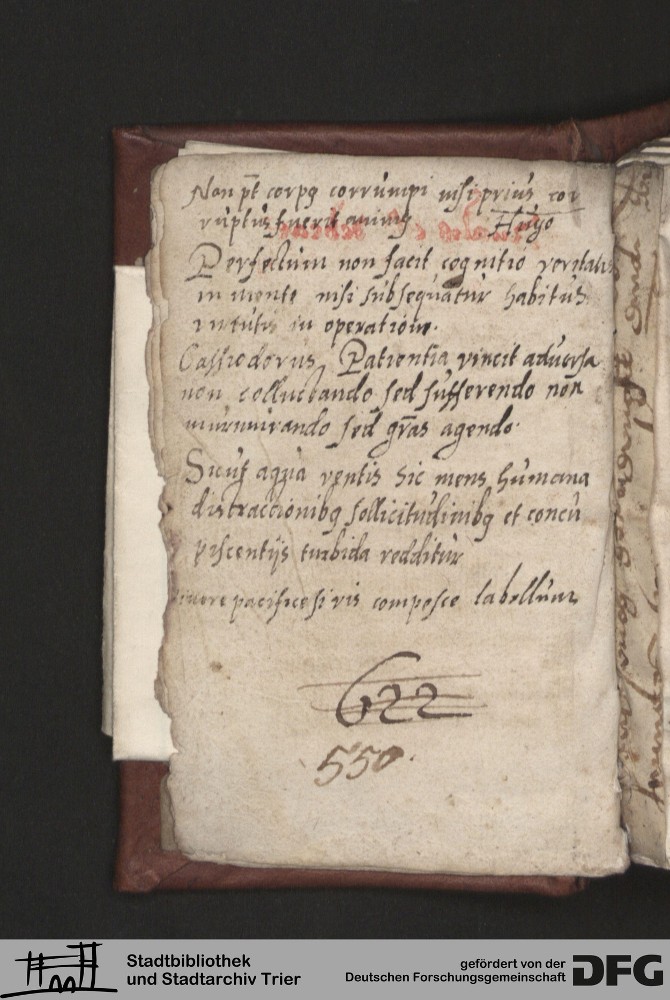 Non pt̄ corpꝯ corrumpi nisi prius cor
ruptus fuerit animꝯ Hugo
Perfectum non facit cognitio veritatis
in mente nisi subsequatur habitus
virtutis in operatione.
Cassiodorus Patientia vincit adversa
non colluctando sed sufferendo non
murmurando sed gr̄as agendo.
Sicut aqua ventis sic mens humana
distraccionibꝯ sollicitudinibꝯ et concu
piscentijs turbida redditur
vivere pacifice si vis compesce labellum
622
550.
Stadtbibliothek
und Stadtarchiv Trier
gefördert von der
Deutschen Forschungsgemeinschaft
DFG